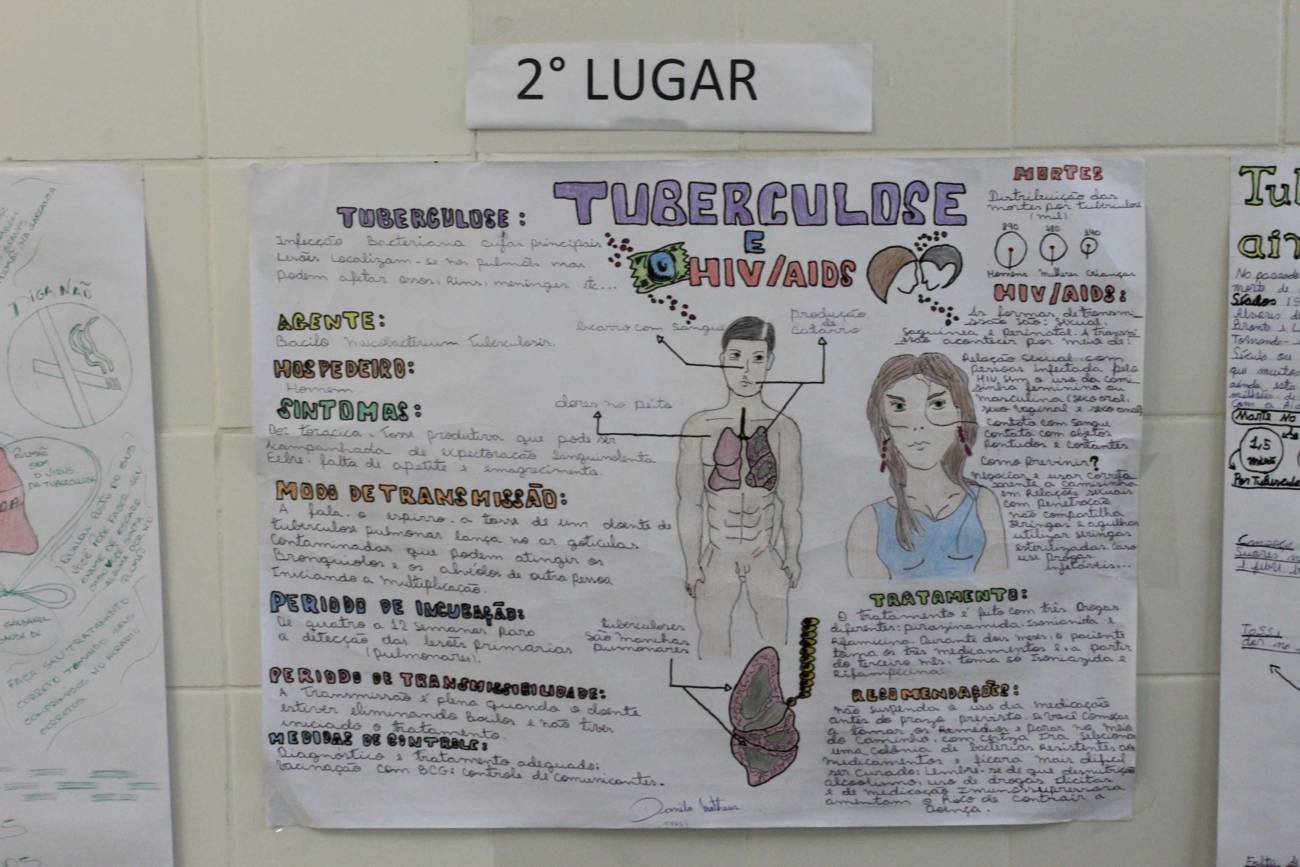 2° LUGAR
TUBERCULOSE
E
HIV/AIDS
TUBERCULOSE:
Infecção Bacteriana cujas principais
Lesões Localizam-se nos pulmões mas
podem afetar ossos, Rins, meninges etc...
AGENTE:
Bacilo Tuberculosis.
HOSPEDEIRO:
Homem
SINTOMAS:
Dor torácica. Tosse produtiva que pode ser
acompanhada de expectoração sanguinolenta
Febre, falta de apetite e emagrecimento.
MODO DE TRANSMISSÃO:
A fala, o espirro, a tosse de um doente de
tuberculose pulmonar lança no ar gotículas
Contaminadas que podem atingir os
Bronquiolos e os alvéolos de outra pessoa
Iniciando a multiplicação.
PERIODO DE INCUBAÇÃO:
De quatro a 12 Semanas para
a detecção das lesões primárias
(pulmonares).
PERIODO DE TRANSMISSIBILIDADE:
A Transmissão é plena quando o doente
estiver eliminando Bacilos e não tiver
iniciado o tratamento.
MEDIDAS DE CONTROLE:
Diagnóstico e tratamento adequado;
vacinação com BCG; controle de comunicantes.
Escarro com sangue
produção
de
catarro
dores no peito
tuberculoses
São manchas
pulmonares
Danilo Matheus
MORTES
Distribuição das
mortes por tuberculose
(mil)
890 480 140
Homens Mulheres Crianças
HIV/AIDS:
As formas de transmi-
ssão são: Sexual,
Sanguínea e Perinatal. A transmi-
ssão acontecer por meio de:
Relação sexual com
pessoas infectada pelo
HIV sem o uso da cami-
sinha feminina ou
masculina (sexo oral,
sexo vaginal e sexo anal)
Contato com sangue
contato com objetos
pontudos e cortantes
Como prevenir?
negociar e usar
a camisinha
em Relações sexuais
com penetração
não compartilha
seringas e agulhas
utilizar seringas
esterilizadas, caso
use Drogas
Injetáveis...
TRATAMENTO:
O tratamento é feito com três Drogas
diferentes: pirazinamida, Isoniazida e
Rifamicina. Durante dois meses, o paciente
toma os três medicamentos e, a partir
do terceiro mês, toma só Isoniazida e
Rifampicina.
RECOMENDAÇÕES:
não suspenda o uso da medicação
antes do prazo previsto. Se você começar
a tomar os Remédios e parar no meio
do Caminho, com certeza irá selecionar
uma colônia de bactérias Resistentes aos
medicamentos e ficará mais difícil
ser Curado; Lembre-se de que desnutrição
alcoolismo, uso de drogas ilícitas
e de medicação Imunossupressora
aumentam o Risco de contrair a
Doença.
DIGA NÃO
FAÇA SEU TRATAMENTO
CORRETO TOMANDO SEUS
COMPRIMIDOS NO HORÁRIO
No passado
que muitos
1,5